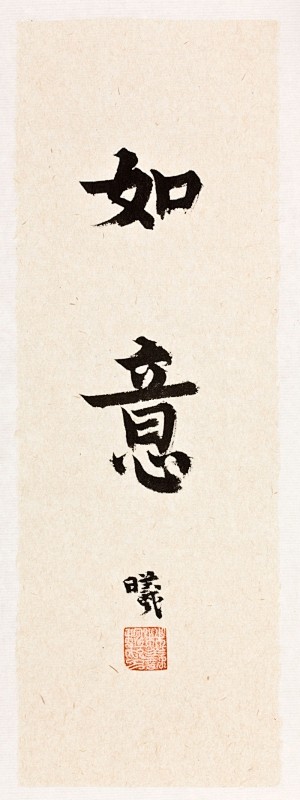 如意
曦